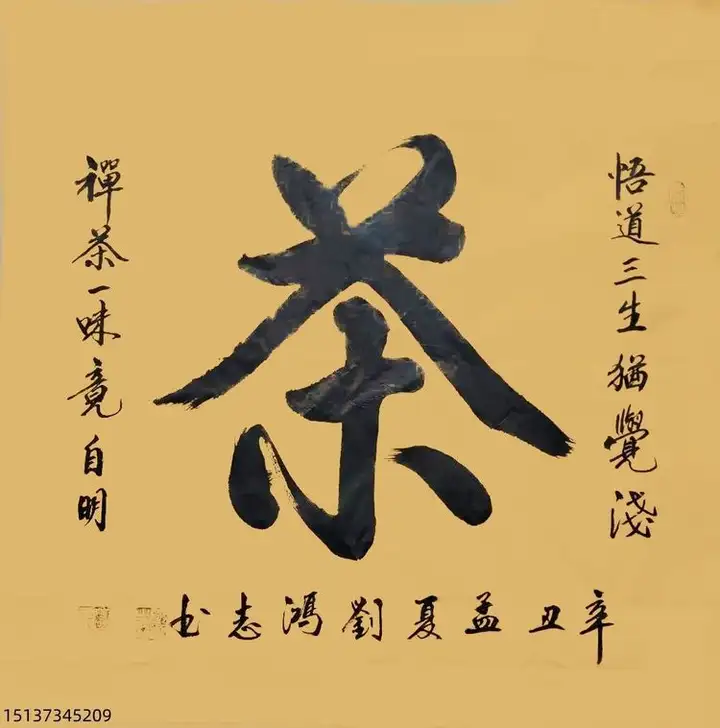 茶
悟道三生猶覺淺
禪茶一味竟自明
辛丑孟夏劉鴻志书
15137345209